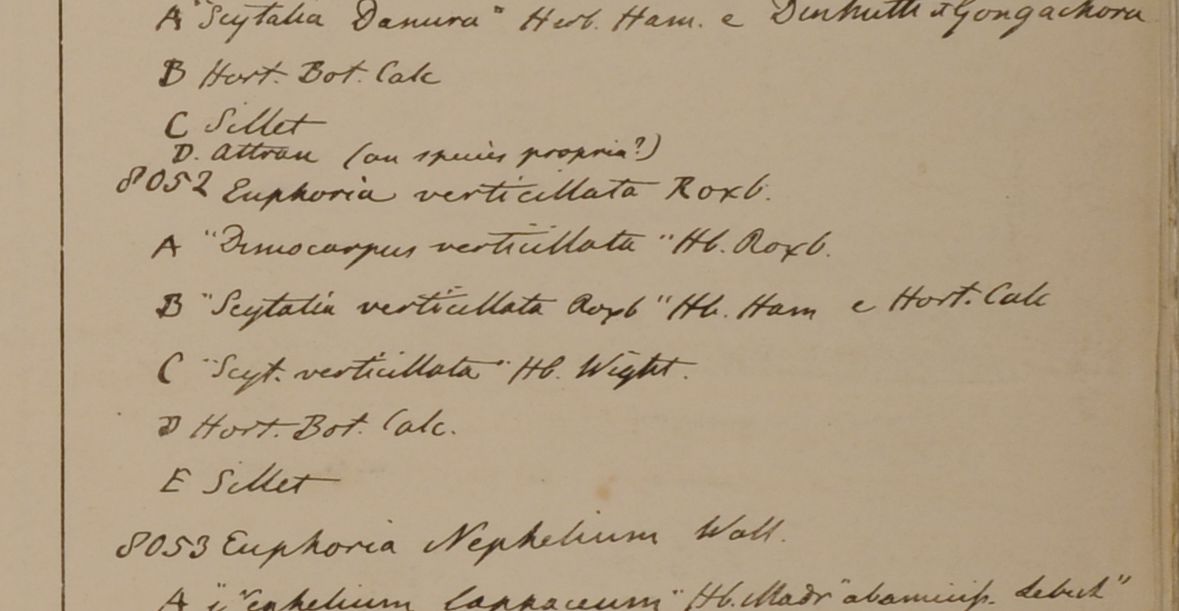 A "Scytalia Danura" Herb. Ham. e Dinhutti et Gongachora
B Hort. Bot. Calc
C Sillet
D. Attran (an species propria?)
8052 Euphoria verticillata Roxb.
A "Dimocarpus verticillata" Hb. Roxb.
B "Scytalia verticillata Roxb" Hb. Ham e Hort. Calc
C "Scyt. verticillata" Hb. Wight.
D Hort. Bot. Calc.
E Sillet
8053 Euphoria Nephelium Wall.
A "Nephelium lappaceum" Hb. Madr